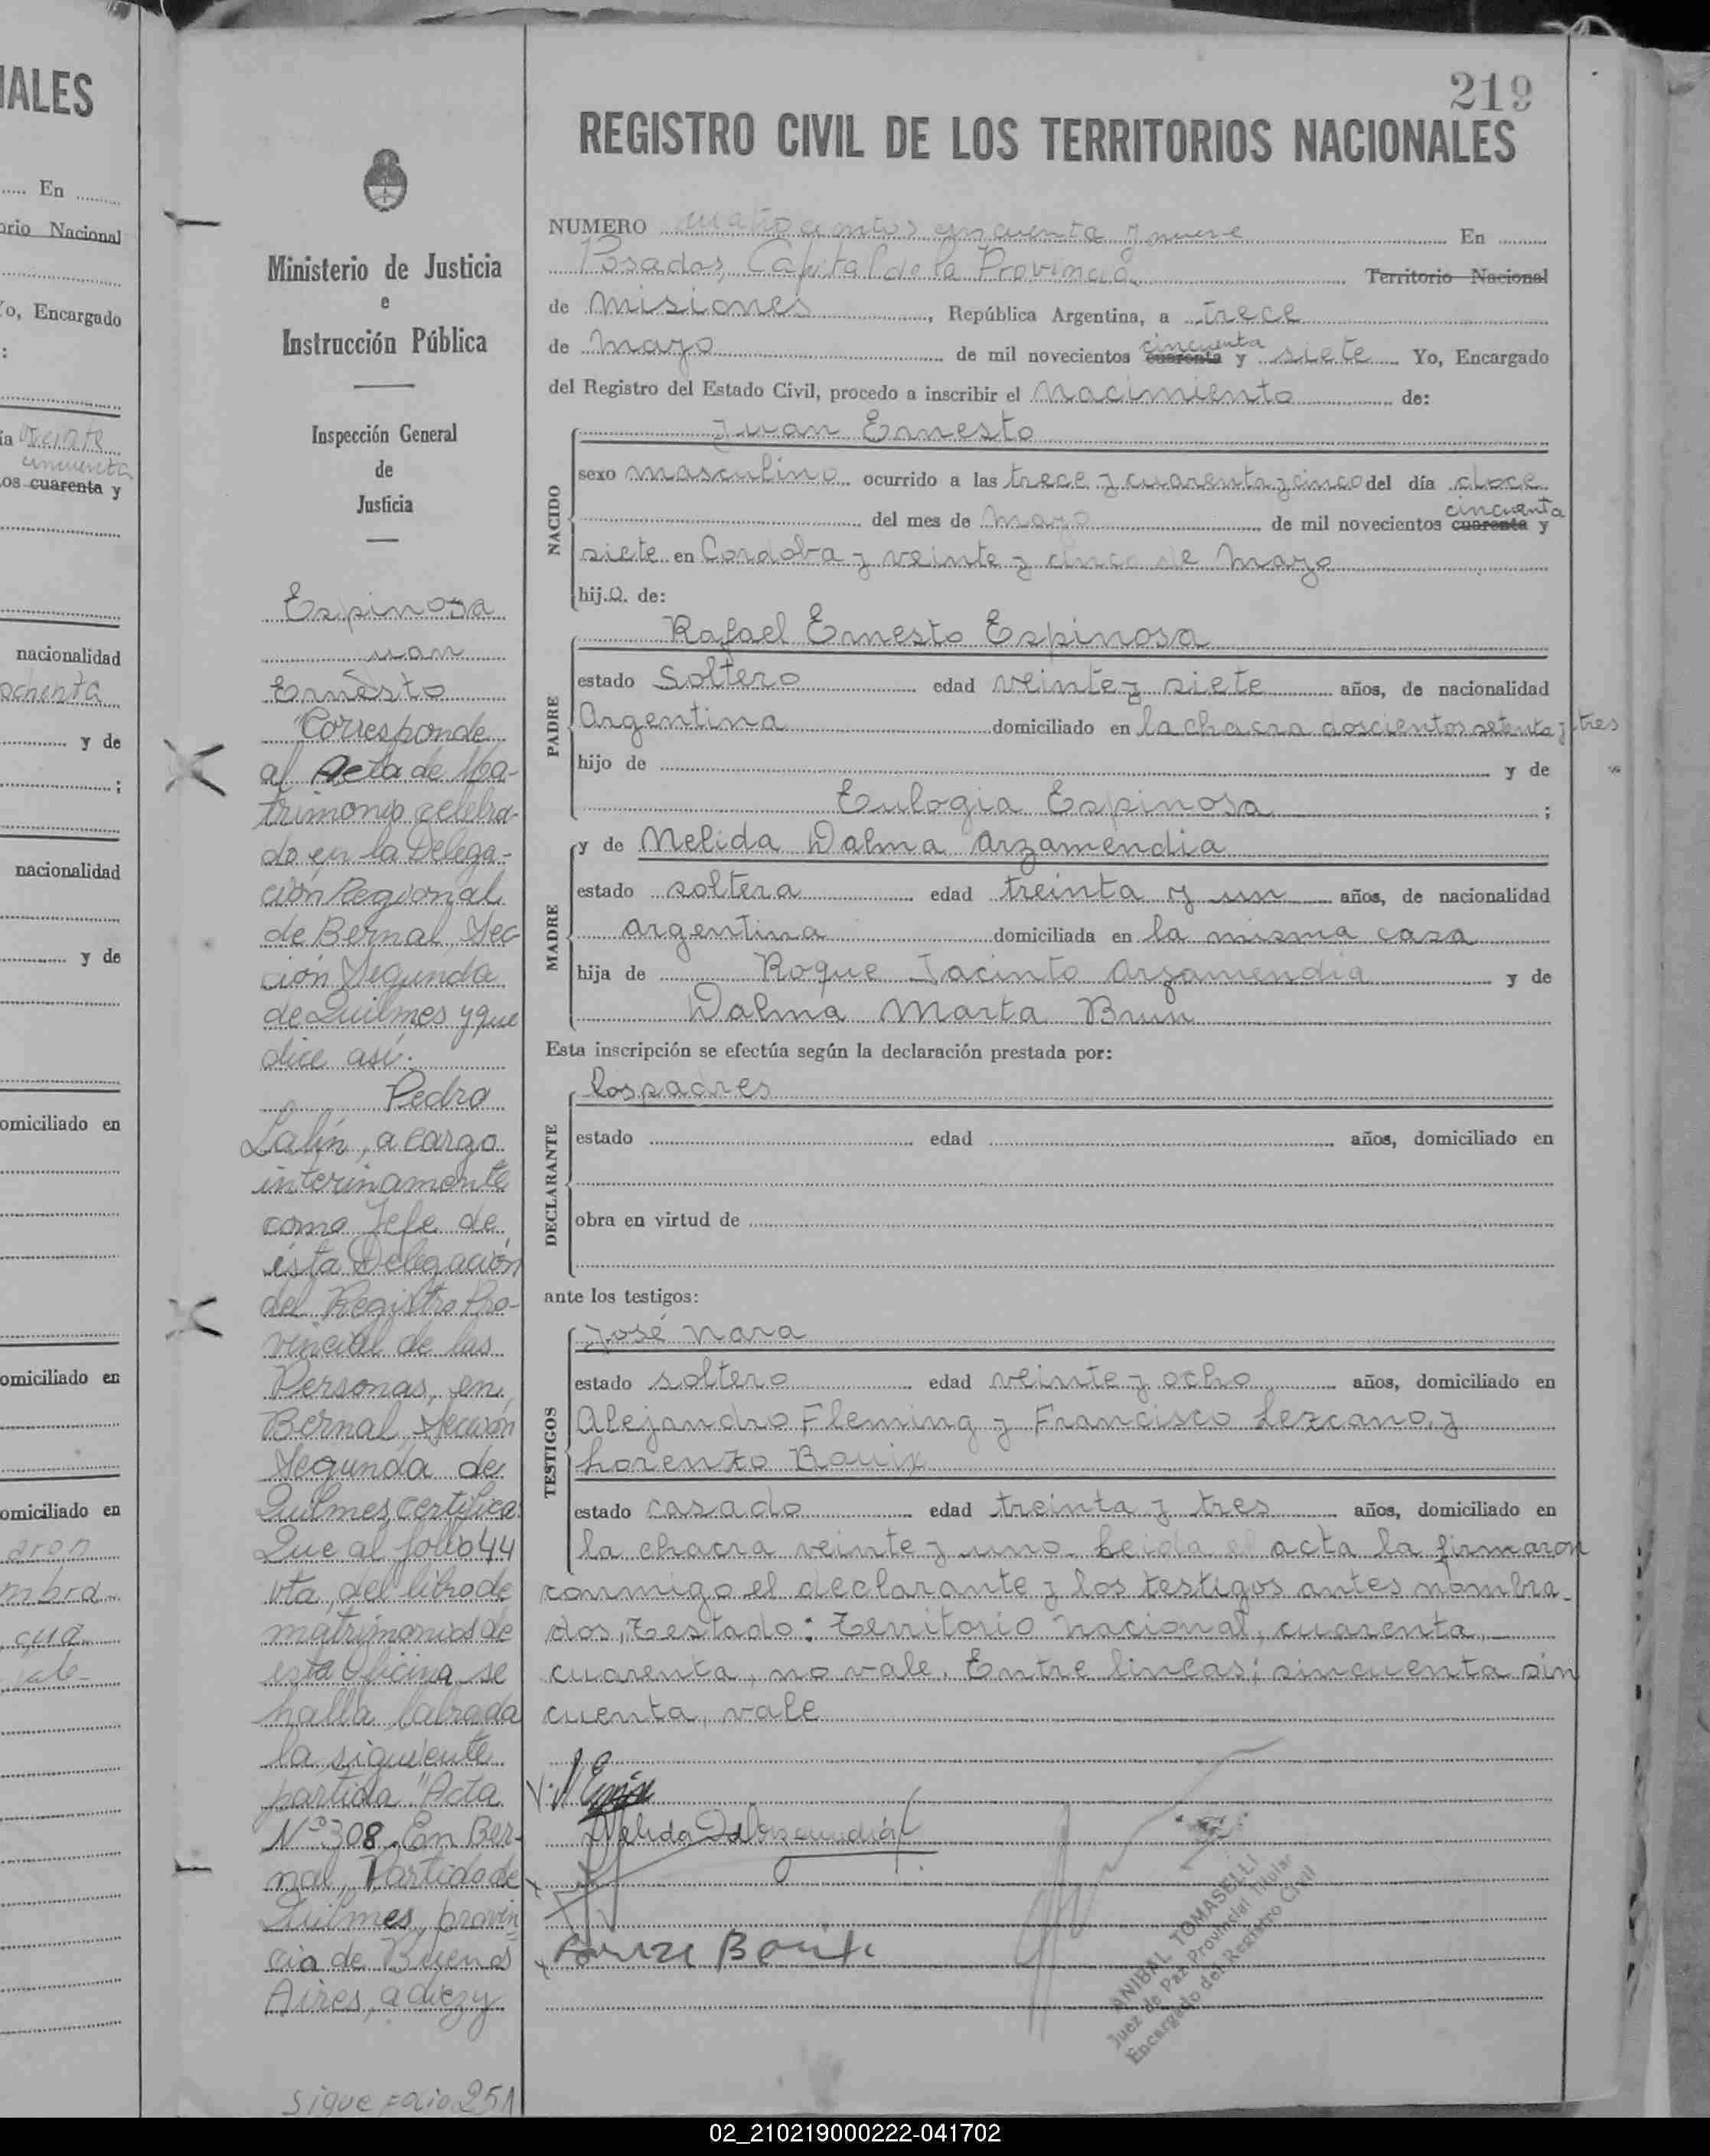 IALES
En
orio Nacional
Yo, Encargado
:
ía veinte
cincuenta
os cuarenta y
nacionalidad
ochenta
y de
;
nacionalidad
y de
omiciliado en
omiciliado en
omiciliado en
aron
mbra
cua
vale
Ministerio de Justicia
e
Instrucción Pública
Inspección General
de
Justicia
Espinosa
Juan
Ernesto
"Corresponde
al Acta de Ma-
trimonio celebra-
do en la Delega-
ción Regional
de Bernal, Sec-
ción Segunda
de Quilmes y que
dice así:
Pedro
Lalín, a cargo
interinamente
como Jefe de
ésta Delegación
del Registro Pro-
vincial de las
Personas, en
Bernal, Sección
Segunda de
Quilmes, certifica:
Que al folio 44
vta, del libro de
matrimonios de
esta Oficina se
halla labrada
la siguiente
partida "Acta
Nº 308. En Ber-
nal, Partido de
Quilmes, provin
cia de Buenos
Aires, a diez y
sigue folio 251
219
REGISTRO CIVIL DE LOS TERRITORIOS NACIONALES
NUMERO cuatrocientos cincuenta y nueve En
Posadas, Capital de la Provincia Territorio Nacional
de Misiones, República Argentina, a trece
de Mayo de mil novecientos cuarenta cincuenta y siete Yo, Encargado
del Registro del Estado Civil, procedo a inscribir el nacimiento de:
NACIDO
Juan Ernesto
sexo masculino ocurrido a las trece y cuarenta y cinco del día doce
del mes de Mayo de mil novecientos cuarenta cincuenta y
siete en Cordoba y veinte y cinco de Mayo
hij.o. de:
PADRE
Rafael Ernesto Espinosa
estado Soltero edad veinte y siete años, de nacionalidad
Argentina domiciliado en la chacra doscientos setenta y tres
hijo de y de
Eulogia Espinosa ;
MADRE
y de Melida Dalma Arzamendia
estado soltera edad treinta y un años, de nacionalidad
argentina domiciliada en la misma casa
hija de Roque Jacinto Arzamendia y de
Dalma Marta Brun
Esta inscripción se efectúa según la declaración prestada por:
DECLARANTE
los padres
estado edad años, domiciliado en
obra en virtud de
ante los testigos:
TESTIGOS
José Nara
estado soltero edad veinte y ocho años, domiciliado en
Alejandro Fleming y Francisco Lezcano, y
Lorenzo Bauix
estado casado edad treinta y tres años, domiciliado en
la chacra veinte y uno. Leida el acta la firmaron
conmigo el declarante y los testigos antes nombra_
dos, Testado: Territorio Nacional, cuarenta,
cuarenta, no vale. Entre lineas: sincuenta sin
cuenta, vale
ANIBAL TOMASELLI
Juez de Paz Provincial Titular
Encargado del Registro Civil
02_210219000222-041702